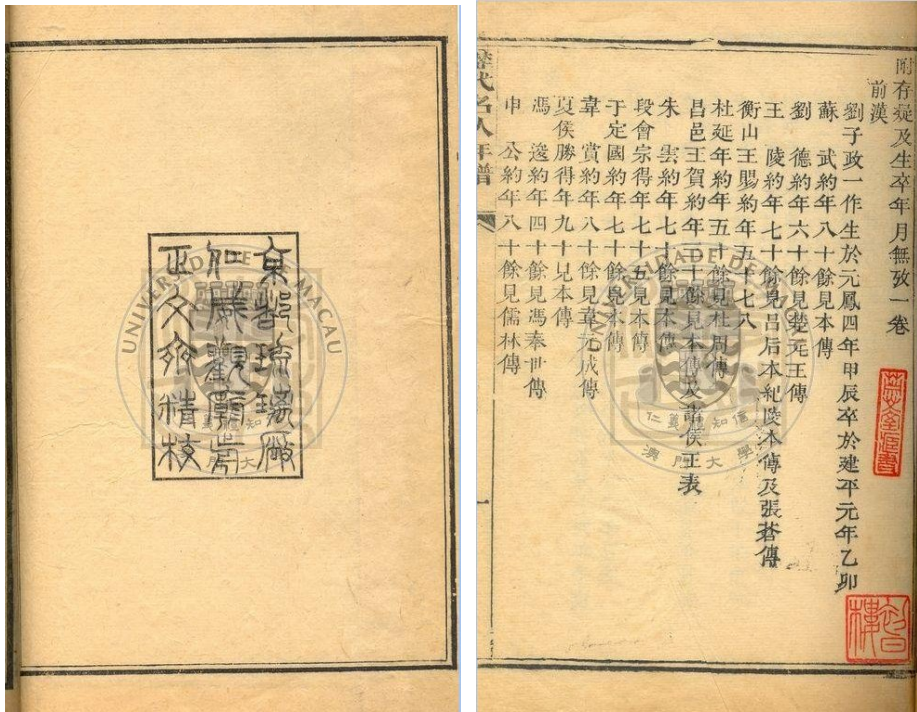 京都琉璃廠
正文齋精校
附存疑及生卒年月無攷一卷
前漢
劉子政一作生於元鳳四年甲辰卒於建平元年乙卯
蘇 武約年八十餘見本傳
劉 德約年六十餘見楚元王傳
王 陵約年七十餘見呂后本紀陵本傳及張蒼傳
衡山王賜約年五十七八
杜延年約年五十餘見杜周傳
昌邑王賀約年三十餘見本傳及諸侯王表
朱 雲約年七十餘見本傳
段會宗得年七十五見本傳
于定國約年七十餘見本傳
韋 賞約年八十餘見韋元成傳
夏侯勝得年九十見本傳
馮 逡約年四十餘見馮奉世傳
申 公約年八十餘見儒林傳
歷代名人年譜
一
初日樓
UNIVERSIDADE DE MACAU
仁義禮知信
澳門大學